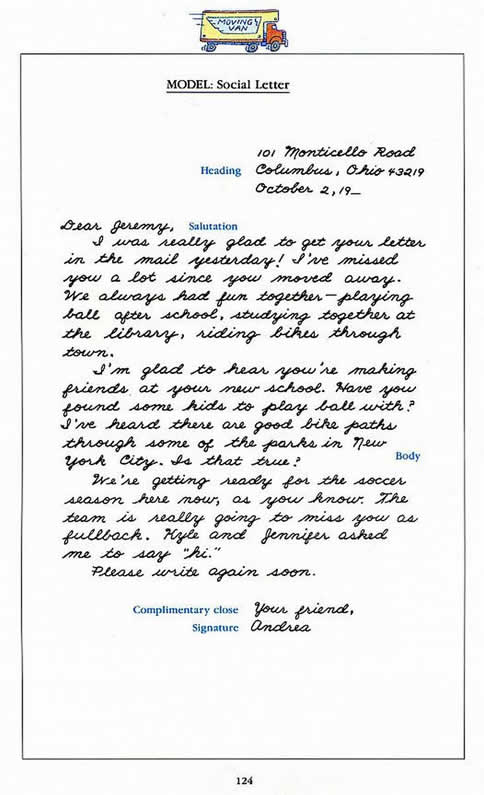 MOVING
VAN
MODEL: Social Letter
101 Monticello Road
Heading Columbus, Ohio 43219
October 2, 19_
Dear Jeremy, Salutation
I was really glad to get your letter
in the mail yesterday! I've missed
you a lot since you moved away.
We always had fun together—playing
ball after school, studying together at
the library, riding bikes through
town.
I'm glad to hear you're making
friends at your new school. Have you
found some kids to play ball with?
I've heard there are good bike paths
through some of the parks in New
York City. Is that true? Body
We're getting ready for the soccer
season here now, as you know. The
team is really going to miss you as
fullback. Kyle and Jennifer asked
me to say "hi."
Please write again soon.
Complimentary close Your friend,
Signature Andrea
124